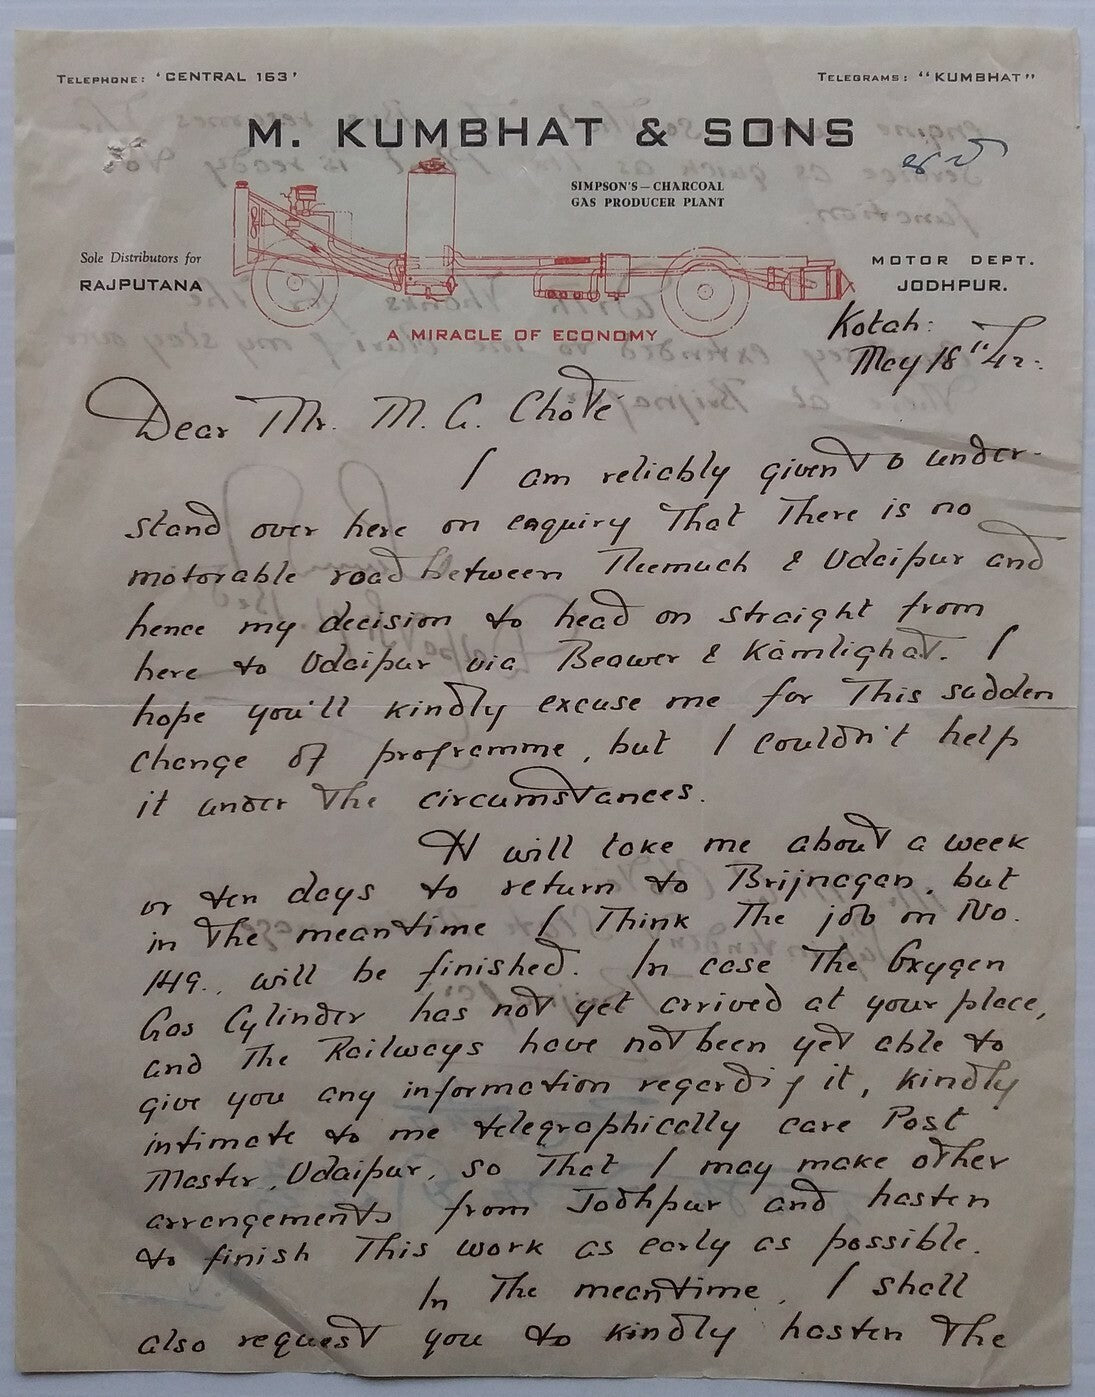 TELEPHONE: 'CENTRAL 163'
TELEGRAMS: "KUMBHAT"
M. KUMBHAT & SONS
SIMPSON'S—CHARCOAL
GAS PRODUCER PLANT
Sole Distributors for
RAJPUTANA
MOTOR DEPT.
JODHPUR.
A MIRACLE OF ECONOMY
Kotah:
May 18th 42.
Dear Mr. M. G. Chote
I am reliably given to under-
stand over here on enquiry that there is no
motorable road between Neemuch & Udaipur and
hence my decision to head on straight from
here to Udaipur via Beawer & Kamlighat. I
hope you'll kindly excuse me for this sudden
change of programme, but I couldn't help
it under the circumstances.
It will take me about a week
or ten days to return to Brijnagar, but
in the meantime I think the job on No.
149., will be finished. In case the Oxygen
Gas Cylinder has not yet arrived at your place,
and the Railways have not been yet able to
give you any information regarding it, kindly
intimate to me telegraphically care Post
Master, Udaipur, so that I may make other
arrangements from Jodhpur and hasten
to finish this work as early as possible.
In the meantime, I shall
also request you to kindly hasten the